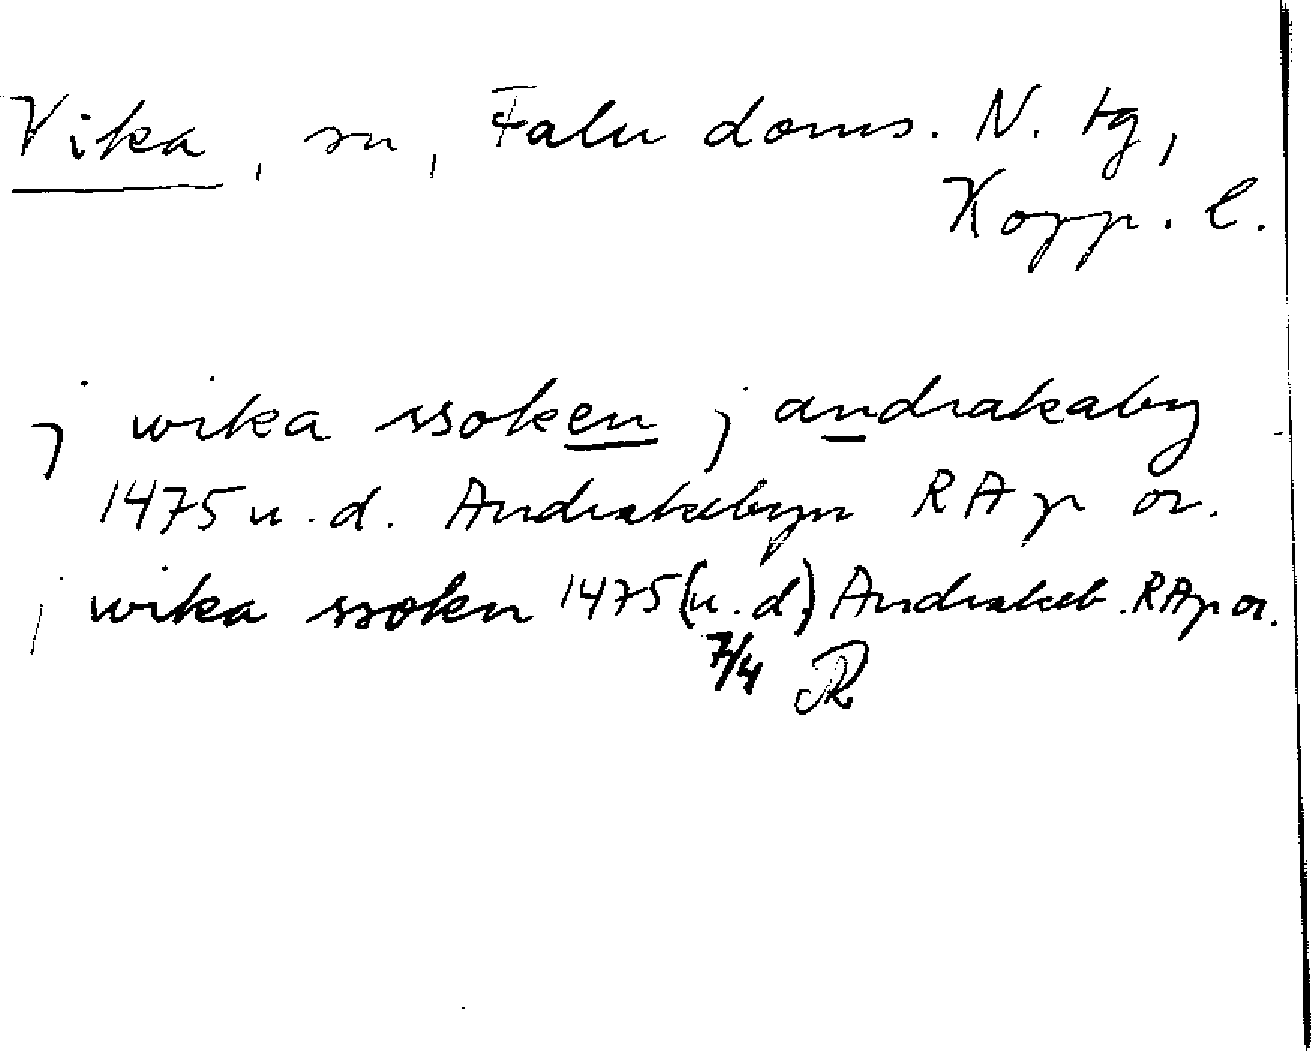 Vika, sn, Falu doms. N. tg,
Kopp. l.
j wika ssoken j andrakaby
1475 u. d. Andrakebyn RA p or.
j wika ssokn 1475 (u. d.) Andrakeb. RAp or.
7/4 JR